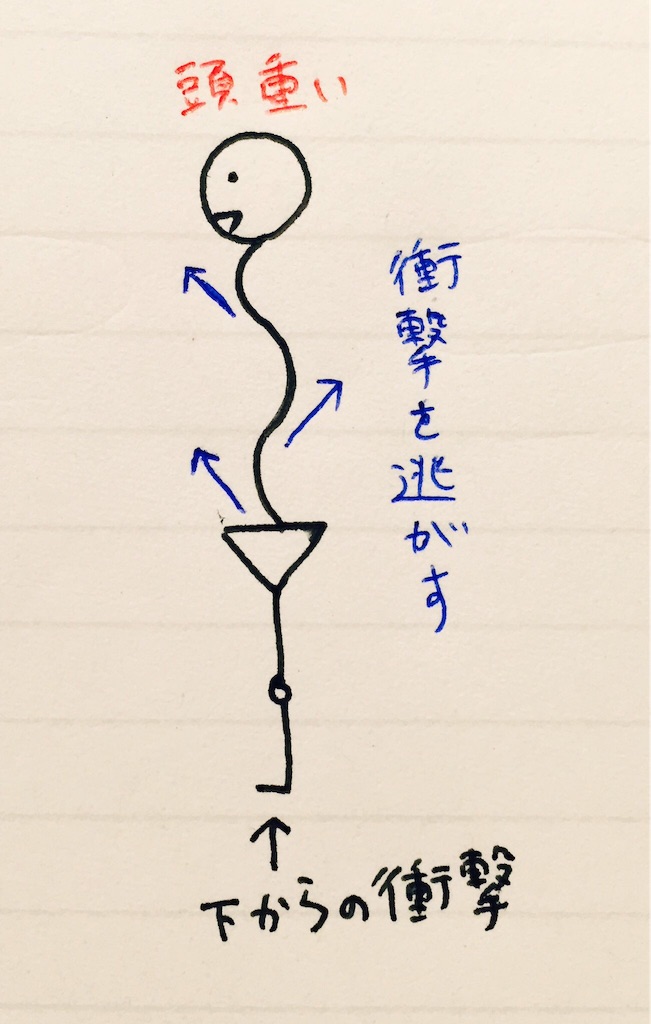 頭重い
衝撃を逃がす
下からの衝撃